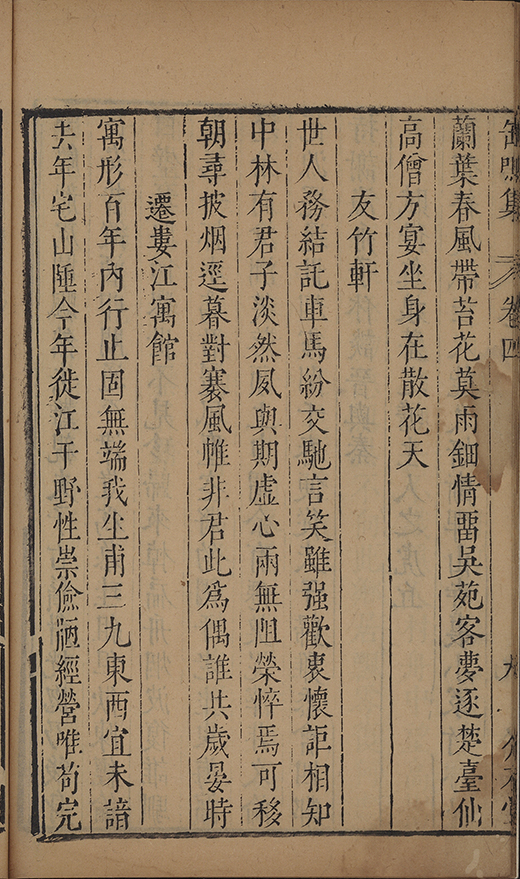 缶鳴集 卷四
蘭葉春風帶苔花莫雨鈿情畱吳苑客夢逐楚臺仙
高僧方宴坐身在散花天
友竹軒
世人務結託車馬紛交馳言笑雖强歡衷懷詎相知
中林有君子淡然夙與期虛心兩無阻榮悴焉可移
朝尋披烟逕暮對褰風帷非君此爲偶誰共歲晏時
遷婁江寓館
寓形百年內行止固無端我生甫三九東西宜未諳
去年宅山陲今年徙江干野性崇儉陋經營唯茍完